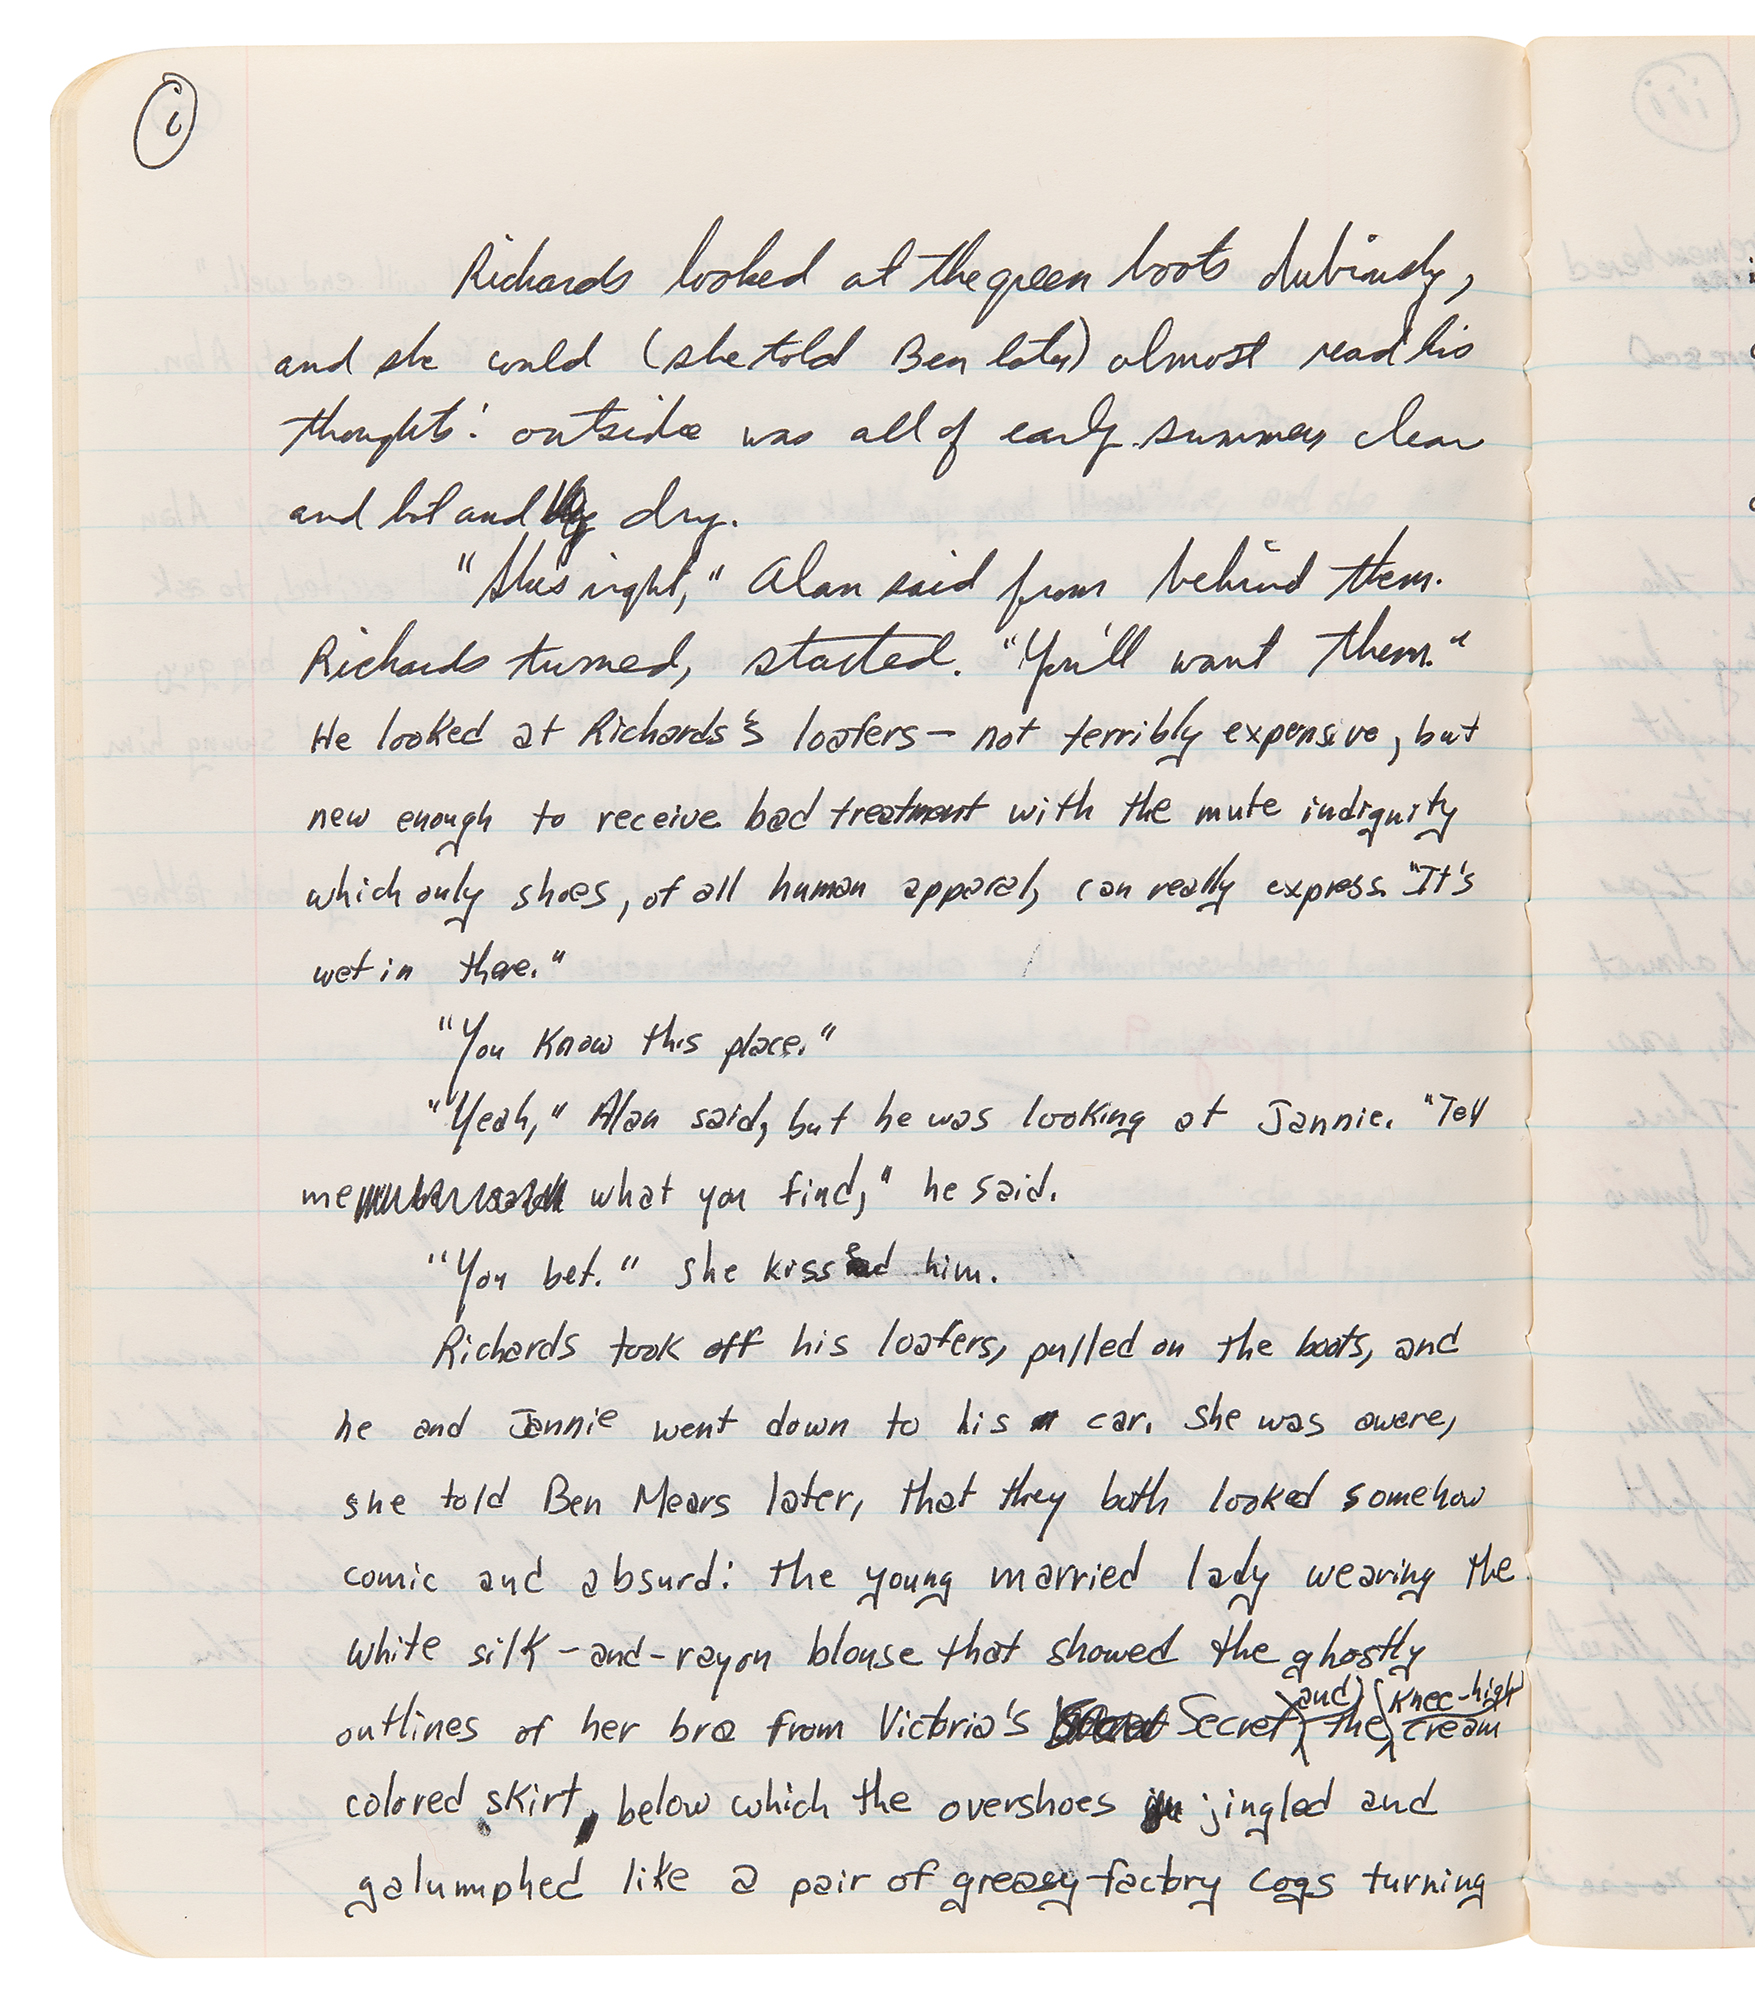 i
Richards looked at the green boots dubiously,
and she could (she told Ben later) almost read his
thoughts: outside was all of early summer, clear
and hot and dry.
"She's right," Alan said from behind them.
Richards turned, started. "You'll want them."
He looked at Richards's loafers — not terribly expensive, but
new enough to receive bad treatment with the mute indignity
which only shoes, of all human apparal, can really express. "It's
wet in there."
"You know this place."
"Yeah," Alan said, but he was looking at Jannie. "Tell
me what you find," he said.
"You bet." She kissed him.
Richards took off his loafers, pulled on the boots, and
he and Jannie went down to his car. She was aware,
she told Ben Mears later, that they both looked somehow
comic and absurd: the young married lady wearing the
white silk-and-rayon blouse that showed the ghostly
outlines of her bra from Victoria's Secret and the knee-high cream
colored skirt, below which the overshoes jingled and
galumphed like a pair of greasy factory cogs turning